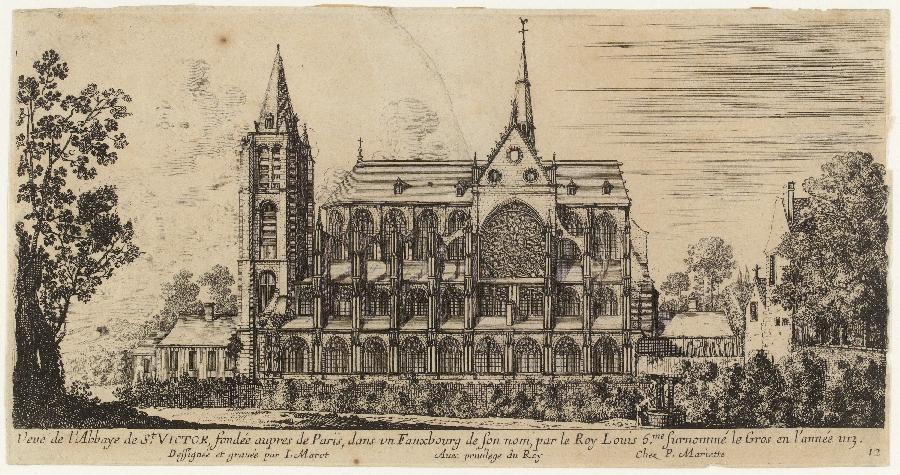 Veuë de l'Abbaye de St. VICTOR, fondée aupres de Paris, dans vn Fauxbourg de son nom, par le Roy Louis 6.me surnommé le Gros en l'année 1113.
Dessignée et gravée par I. Marot Auec priuilege du Roy Chez P. Mariette 12